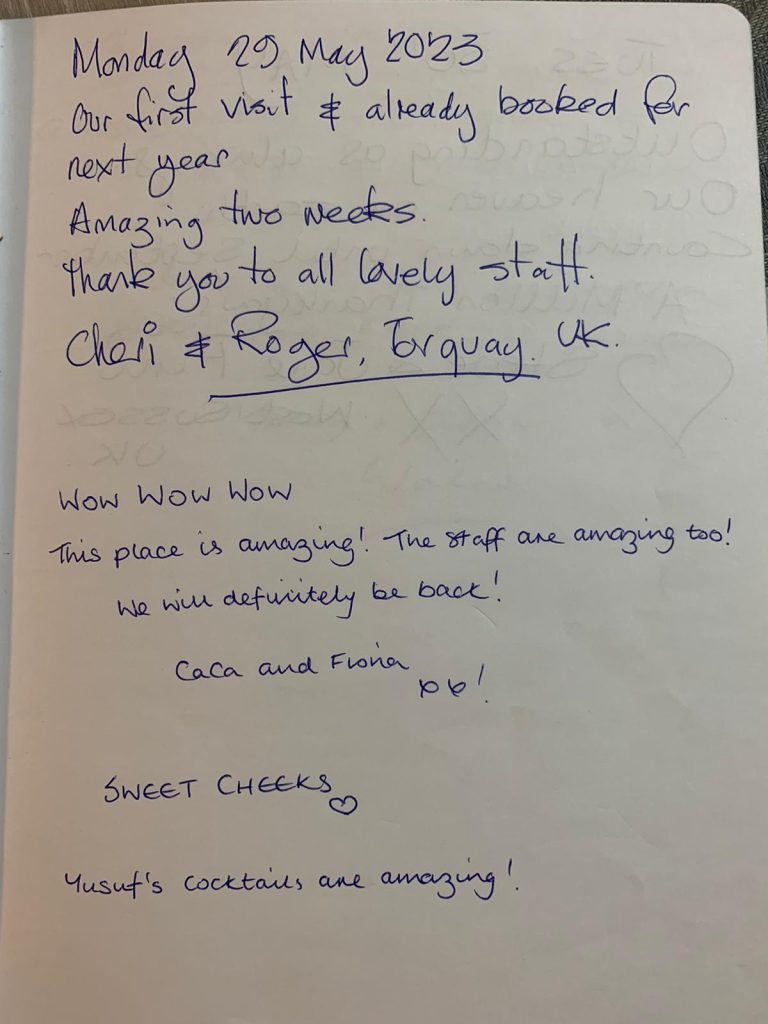 Monday 29 May 2023
Our first visit & already booked for
next year
Amazing two weeks.
Thank you to all lovely staff.
Cheri & Roger, Torquay. UK.
WOW WOW WOW
This place is amazing! The staff are amazing too!
We will definitely be back!
CaCa and Fiona
xx!
SWEET CHEEKS ♡
Yusuf's cocktails are amazing!